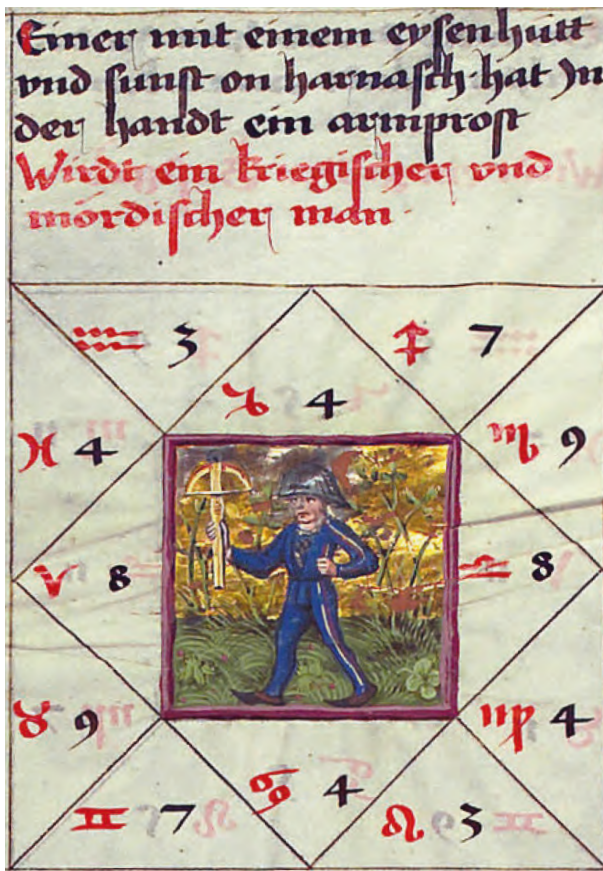 Einer mit einem eysenhütt
vnd sunst on harnasch hat In
der handt ein armprost
Wirdt ein kriegischer vnd
mördischer man ·
♒ 3 ♐ 7
♑ 4
♓ 4 ♏ 9
♈ 8 ♎ 8
♉ 9 ♍ 4
♋ 4
♊ 7 ♌ 3